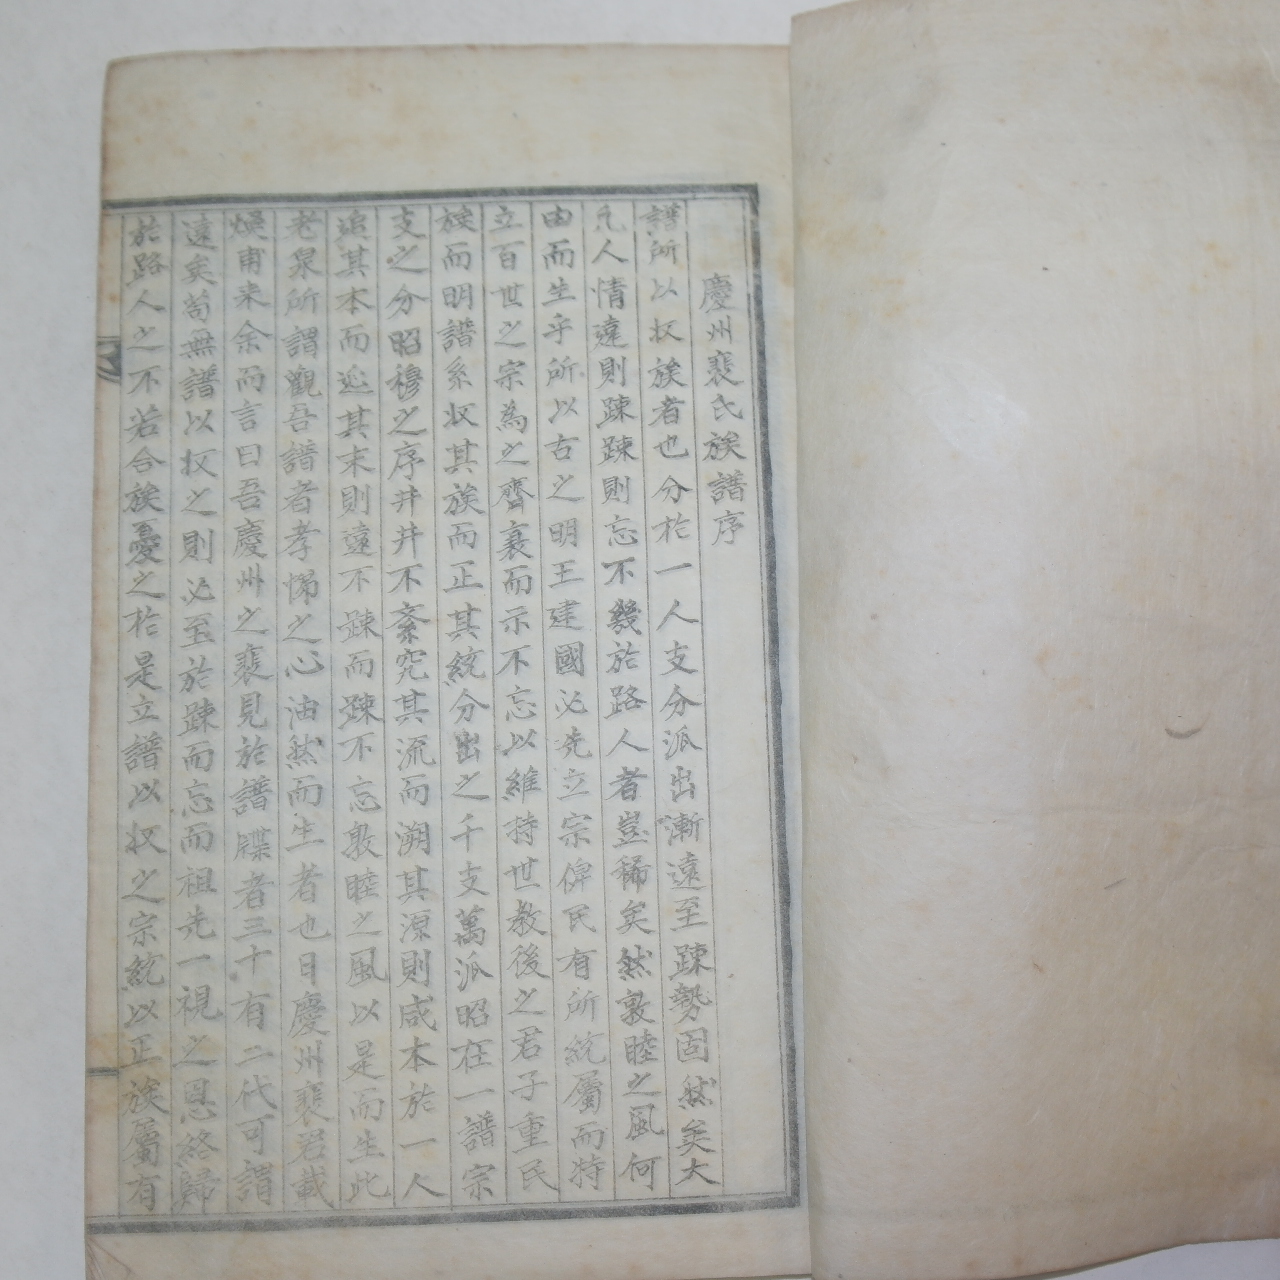 慶州裵氏族譜序
譜所以収族者也分於一人支分派出漸遠至踈勢固然矣大
凡人情遠則踈踈則忘不幾於路人者豈稀矣然敦睦之風何
由而生乎所以古之明王建國必先立宗俾民有所統屬而特
立百世之宗為之齊衰而示不忘以維持世教後之君子重民
族而明譜系収其族而正其統分出之千支萬派昭在一譜宗
支之分昭穆之序井井不紊究其流而溯其源則咸本於一人
追其本而迨其末則遠不踈而踈不忘敦睦之風以是而生此
老泉所謂觀吾譜者孝悌之心油然而生者也日慶州裵君載
煥甫来余而言曰吾慶州之裵見於譜牒者三十有二代可謂
遠矣苟無譜以収之則必至於踈而忘而祖先一視之恩終歸
於路人之不若合族憂之於是立譜以収之宗統以正族屬有